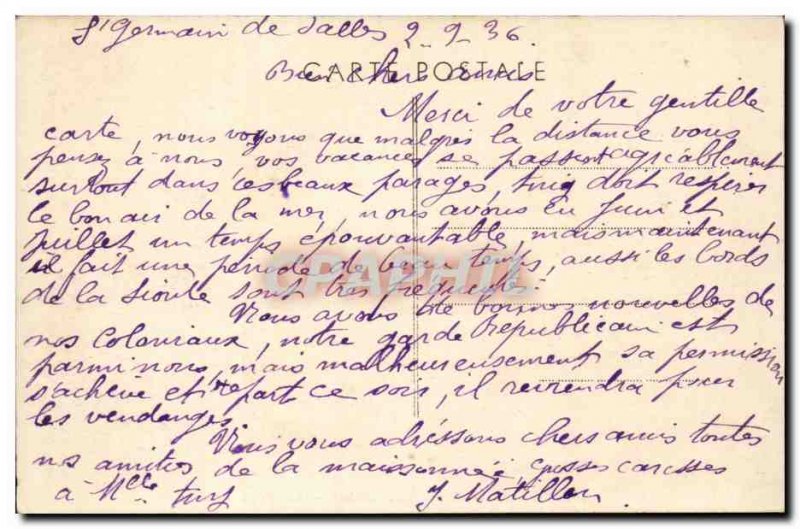 St Germain de Salles 2-9-36
CARTE POSTALE
Bien chers amis
Merci de votre gentille
carte, nous voyons que malgrés la distance vous
pensez à nous, vos vacances se passent agréablement
surtout dans ces beaux parages, doit respirer
le bon air de la mer, nous avons eu Juin et
Juillet un temps épouvantable, mais maintenant
il fait une période de beau temps, aussi les bords
de la Sioule sont très fréquentés.
Nous avons de bonnes nouvelles de
nos coloniaux, notre garde Républicain est
parmi nous, mais malheureusement sa permission
s'achève et repart ce soir, il reviendra pour
les vendanges.
Nous vous adressons chers amis toutes
nos amitiés de la maisonnée grosses caresses
à Mlle
CPAPHIL